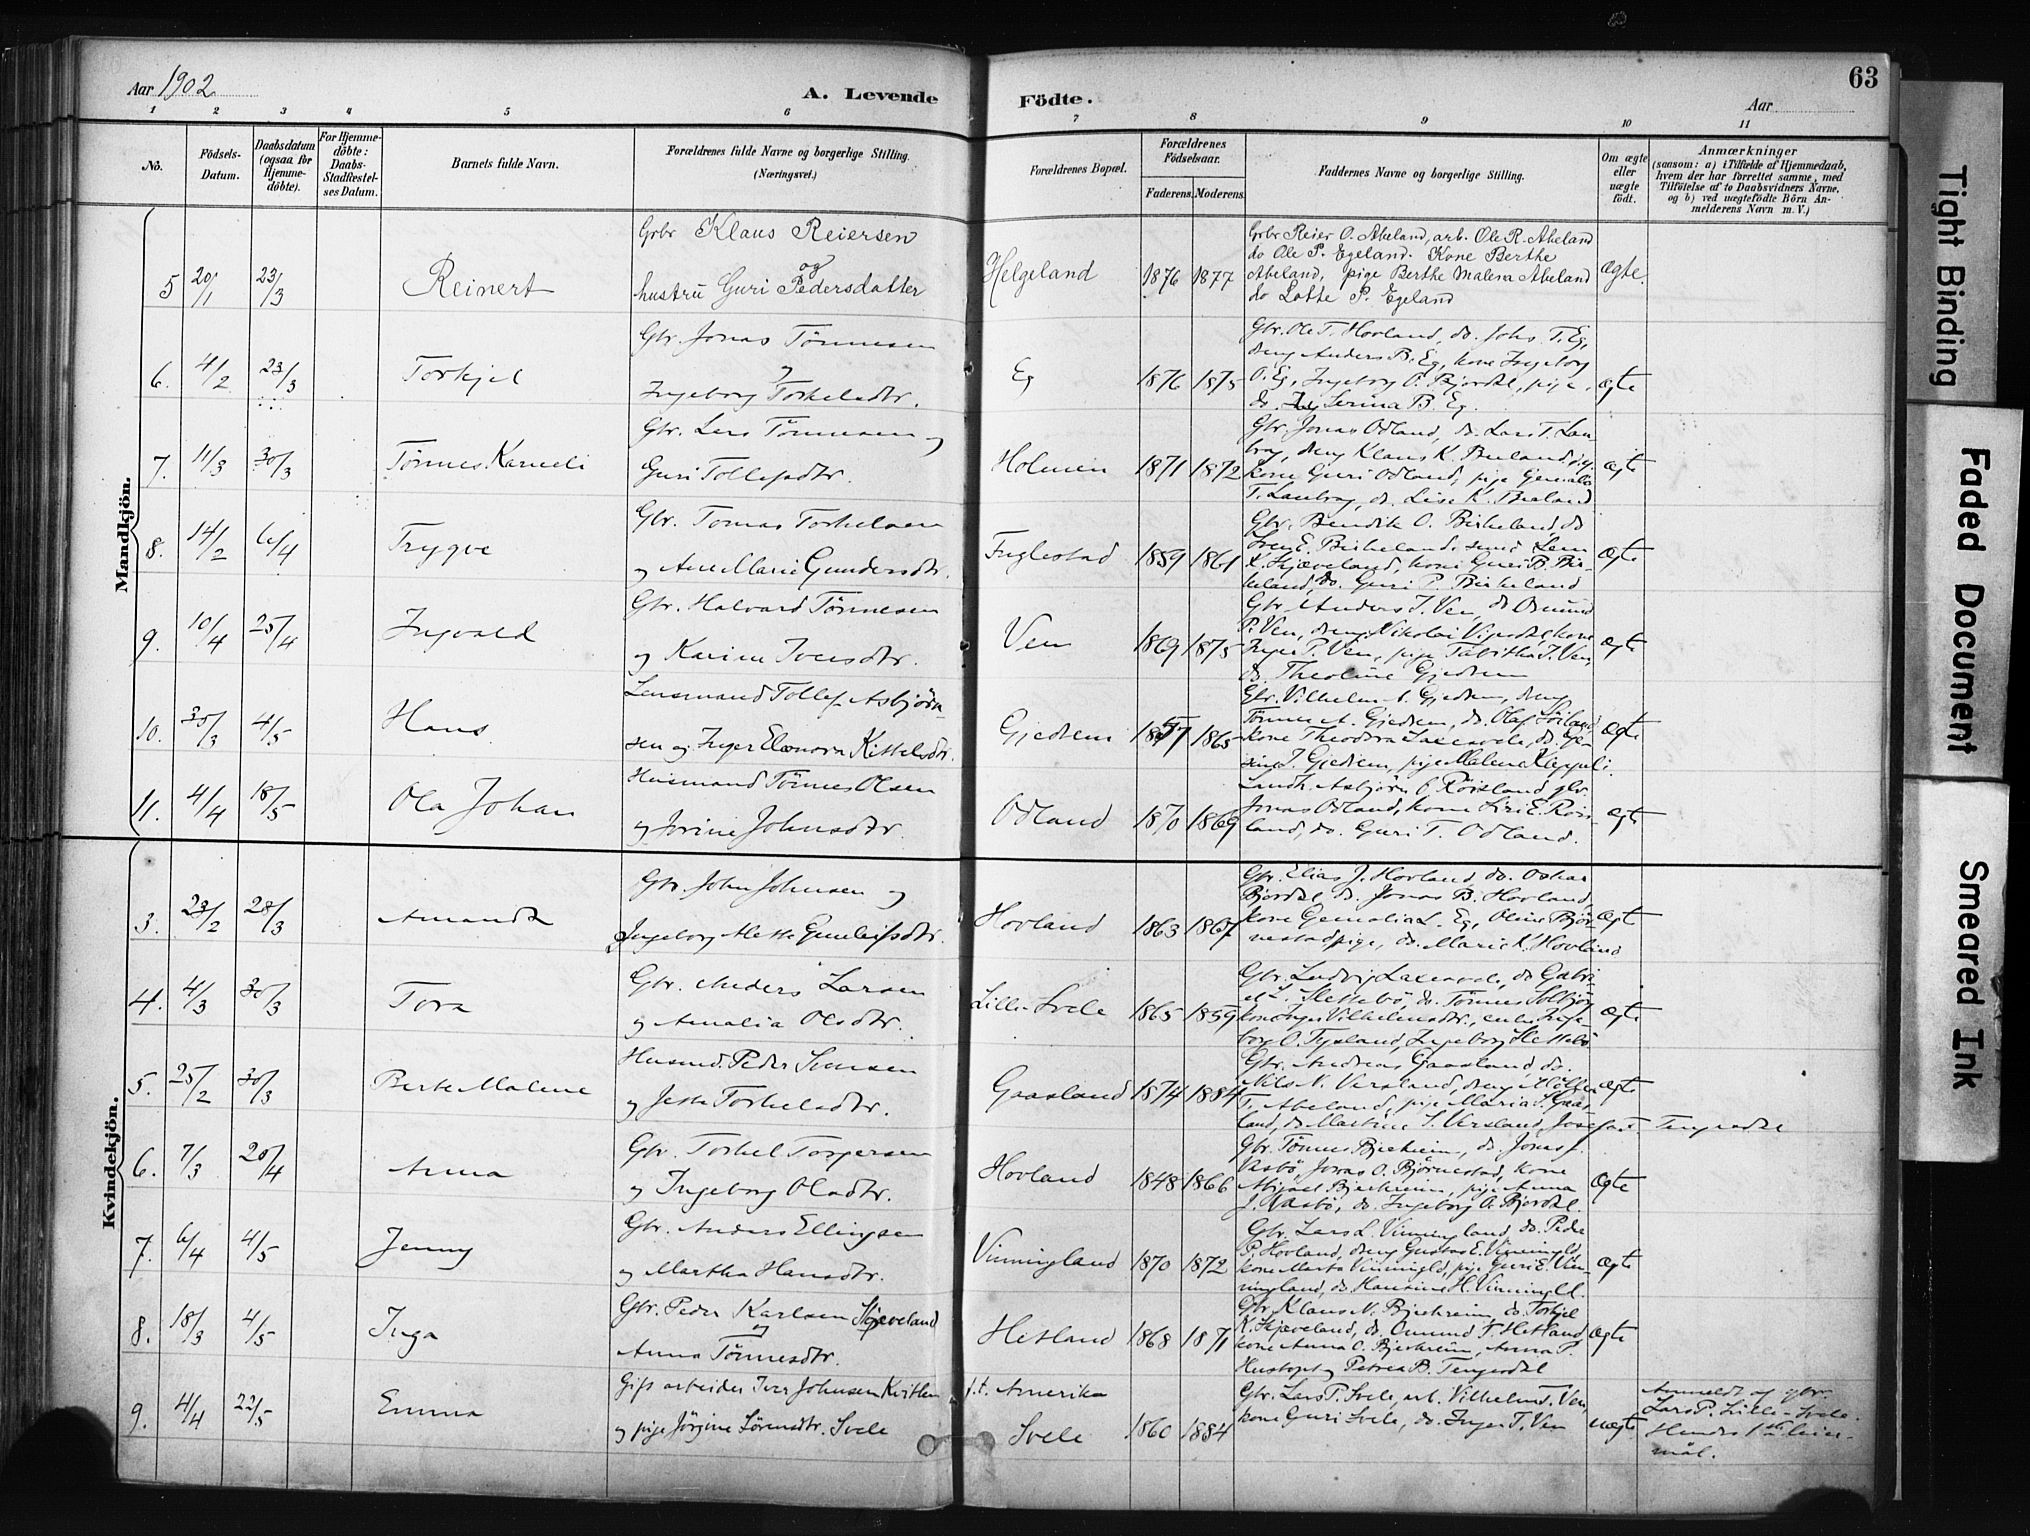 Aar 1902
A. Levende
Födte.
Aar
63
1 2 3 4 5 6 7 8 9 10 11
No.
Födsels-Datum.
Daabsdatum (ogsaa for Hjemmedöbte).
For Hjemmedöbte: Daabs-Stadfæstelses Datum.
Barnets fulde Navn.
Forældrenes fulde Navne og borgerlige Stilling.
(Næringsvei.)
Forældrenes Bopæl.
Forældrenes Födselsaar.
Faderens. Moderens.
Faddernes Navne og borgerlige Stilling.
Om ægte eller uægte födt.
Anmærkninger
(saasom: a) i Tilfælde af Hjemmedaab,
hvem der har forrettet samme, med
Tilföielse af to Daabsvidners Navne,
og b) ved uægtefödte Börn Anmelderens Navn m. V.)
Mandkjön.
5 20/1 23/3 Reinert
Grbr Klaus Reiersen
og
hustru Guri Pedersdatter
Helgeland 1876 1877
Grbr Reier O. Abeland, arb. Ole R. Abeland
do Ole P. Egeland. Kone Berthe
Abeland, pige Berthe Malena Abeland
do Lotte P. Egeland
Ægte.
6. 4/2 23/3 Torkjel
Gbr. Jonas Tönnesen
og
Ingeborg Torkelsdtr.
Eg 1876 1875
Gbr. Ole T. Hovland, do. Johs. T. Eg,
deng Anders B. Eg, kone Ingeborg
O. Eg, Ingeborg O. Bjordal, pige,
do. Serina B. Eg.
ægte
7. 11/3 30/3 Tönnes Karneli
Gbr. Lars Tönnesen og
Guri Tollefsdtr.
Holmen 1871 1872
Gbr. Jonas Odland, do. Lars T. Lau-
brag, deng Klaus K.
kone Guri Odland, pige
T. Laubrag, do. Lise K.
ægte
8. 14/2 6/4 Trygve
Gbr. Tomas Torkelsen
og Ane Marie Gundersdtr.
Fuglestad 1859 1861
Gbr. Bendik O. Birkeland, do
E. Birkeland,
K. Skjæveland, kone Guri B. Bir-
keland, do. Guri P. Birkeland
Ægte
9. 10/4 25/4 Ingvald
Gbr. Halvard Tönnesen
og Karine Iversdtr.
Ven 1869 1875
Gbr. Anders I. Ven, do Osmund
P. Ven, deng Nikolai Vigesdal, kone
Inger P. Ven, pige Tabitha I. Ven,
do. Theoline Gjedrem
ægte
10. 30/3 4/5 Hans
Lensmand Tollef Asbjörn-
sen og Inger Elenora Kittelsdtr.
Gjedrem 1857 1865
Gbr. Vilhelm A. Gjedrem, deng
Tönnes A. Gjedrem, do. Olaf
kone Theodora Laxesvele, do.
T. Gjedrem, pige Malene Kleppeli.
Ægte
11. 4/4 18/5 Ola Johan
Husmand Tönnes Olsen
og Jorine Johnsdtr.
Odland 1870 1869
Landh. Asbjörn O. Röisland, gbr.
Jonas Odland, kone Siri E. Röis-
land, do. Guri T. Odland.
ægte
Kvindekjön.
3. 23/2 28/3 Amanda
Gbr. John Johnsen og
Ingeborg Mette Gunleifsdtr.
Hovland 1863 1867
Gbr. Elias J. Hovland, do. Oskar
Bjordal, do. Jonas B. Hovland,
kone L. Eg, Oline Björ-
nestad pige, do. Marie K. Hovland
Ægte
4. 4/3 30/3 Tora
Gbr. Anders Larsen
og Amalia Olsdtr.
Lille-Svele 1865 1859
Gbr. Ludvig Laxesvele, do Gabri-
el L. Slettebö, do. Tönnes Solbjör,
kone Inger Vilhelmsdtr., enke Inge-
borg O. Tysland, Ingeborg Slettebö
Ægte
5. 25/2 30/3 Berte Malene
Husmd. Peder Simsen
og Jette Torkelsdtr.
Gaasland 1874 1884
Gbr. Andreas Gaasland, do.
Nils N. Versland, deng
T. Abeland, pige Maria S. Gaas-
land, do Martine S. Versland, Josefine T. Tengesdal
ægte
6. 7/3 20/4 Anna
Gbr. Torkel Torgersen
og Ingeborg Olsdtr.
Hovland 1848 1866
Gbr. Tönnes Bjerheim, do. Jonas J.
Vasbö, Jonas O. Björnestad, kone
Abigael Bjerheim, pige Anna
J. Vasbö, do. Ingeborg O. Bjordal.
Ægte
7. 6/4 4/5 Jenny
Gbr. Anders Ellingsen
og Martha Hansdtr.
Vinningland 1870 1872
Gbr. Lars L. Vinningland, do. Peder
P. Hovland, deng Gustav E. Vinningld,
kone Marta Vinningld, pige Guri E. Vin-
ningland, do. Hansine H. Vinningld.
ægte
8. 18/3 4/5 Inga
Gbr. Peder Karlsen Skjæveland
og
Anna Tönnesdtr.
Hetland 1868 1871
Gbr Klaus N. Bjerheim, do. Torkjel
K. Skjæveland, do. Omund T. Hetland,
kone Anna O. Bjerheim, Anna P.
Hustoft og Petrea B. Tengesdal
Ægte
9. 4/4 22/5 Emma
Gift arbeider Iver Johnsen Kvitlen
og pige Jörgine Sörensdtr. Svele
f.t. Amerika
Svele 1860 1884
Gbr. Lars P. Svele, arb. Vilhelm T. Ven,
kone Guri Svele, do. Inger T. Ven
uægte
Anmeldt af gbr.
Lars P. Lille-Svele.
Hendes 1ste leier-
mål.
Tight Binding
Faded Document
Smeared Ink